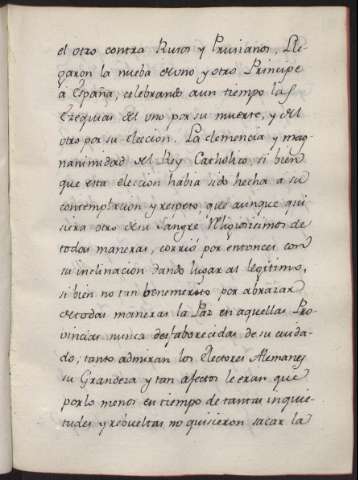 el otro contra Rusos y Prusianos, Lle-
garon la nueba de uno y otro Principe
á España, celebrando aun tiempo las
Exequias del uno por su muerte, y del
otro por su elección. La clemencia y mag-
nanimidad del Rey Catholico, si bien
que esta elección habia sido hecha a su
contemplacion y respeto que aunque qui
siera otro de su sangre
todas maneras, corrió por entonces con
su inclinación dando lugar al legitimo,
si bien no tan benemerito por abrazar
de todas maneras la Paz en aquellas Pro-
vincias nunca desfaborecidas de su cuida-
do, tanto admiran los Electores Alemanes
su Grandeza y tan afectos le eran que
por lo menos en tiempo de tantas inquie-
tudes y rebueltas no quisieron sacar la